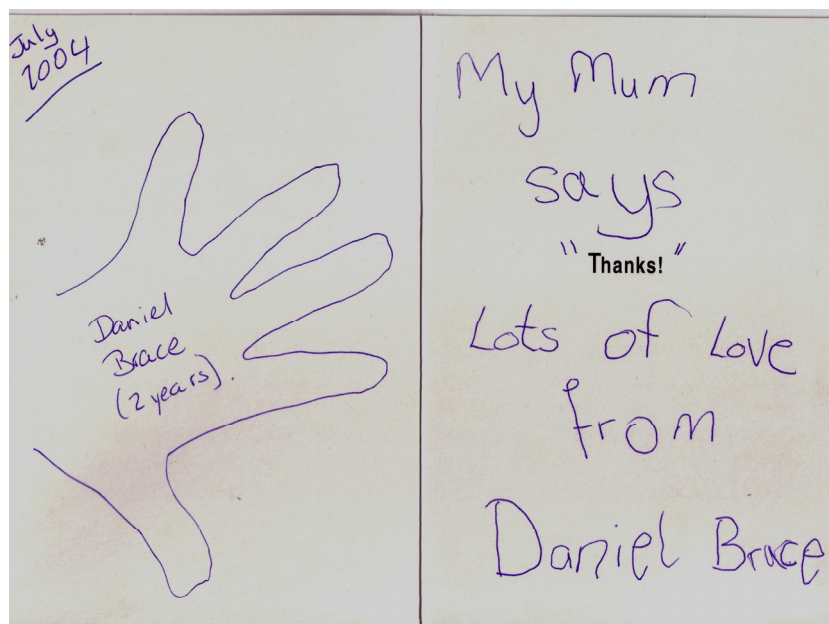 July
2004
Daniel
Brace
(2 years).
My Mum
says
"Thanks!"
Lots of Love
from
Daniel Brace